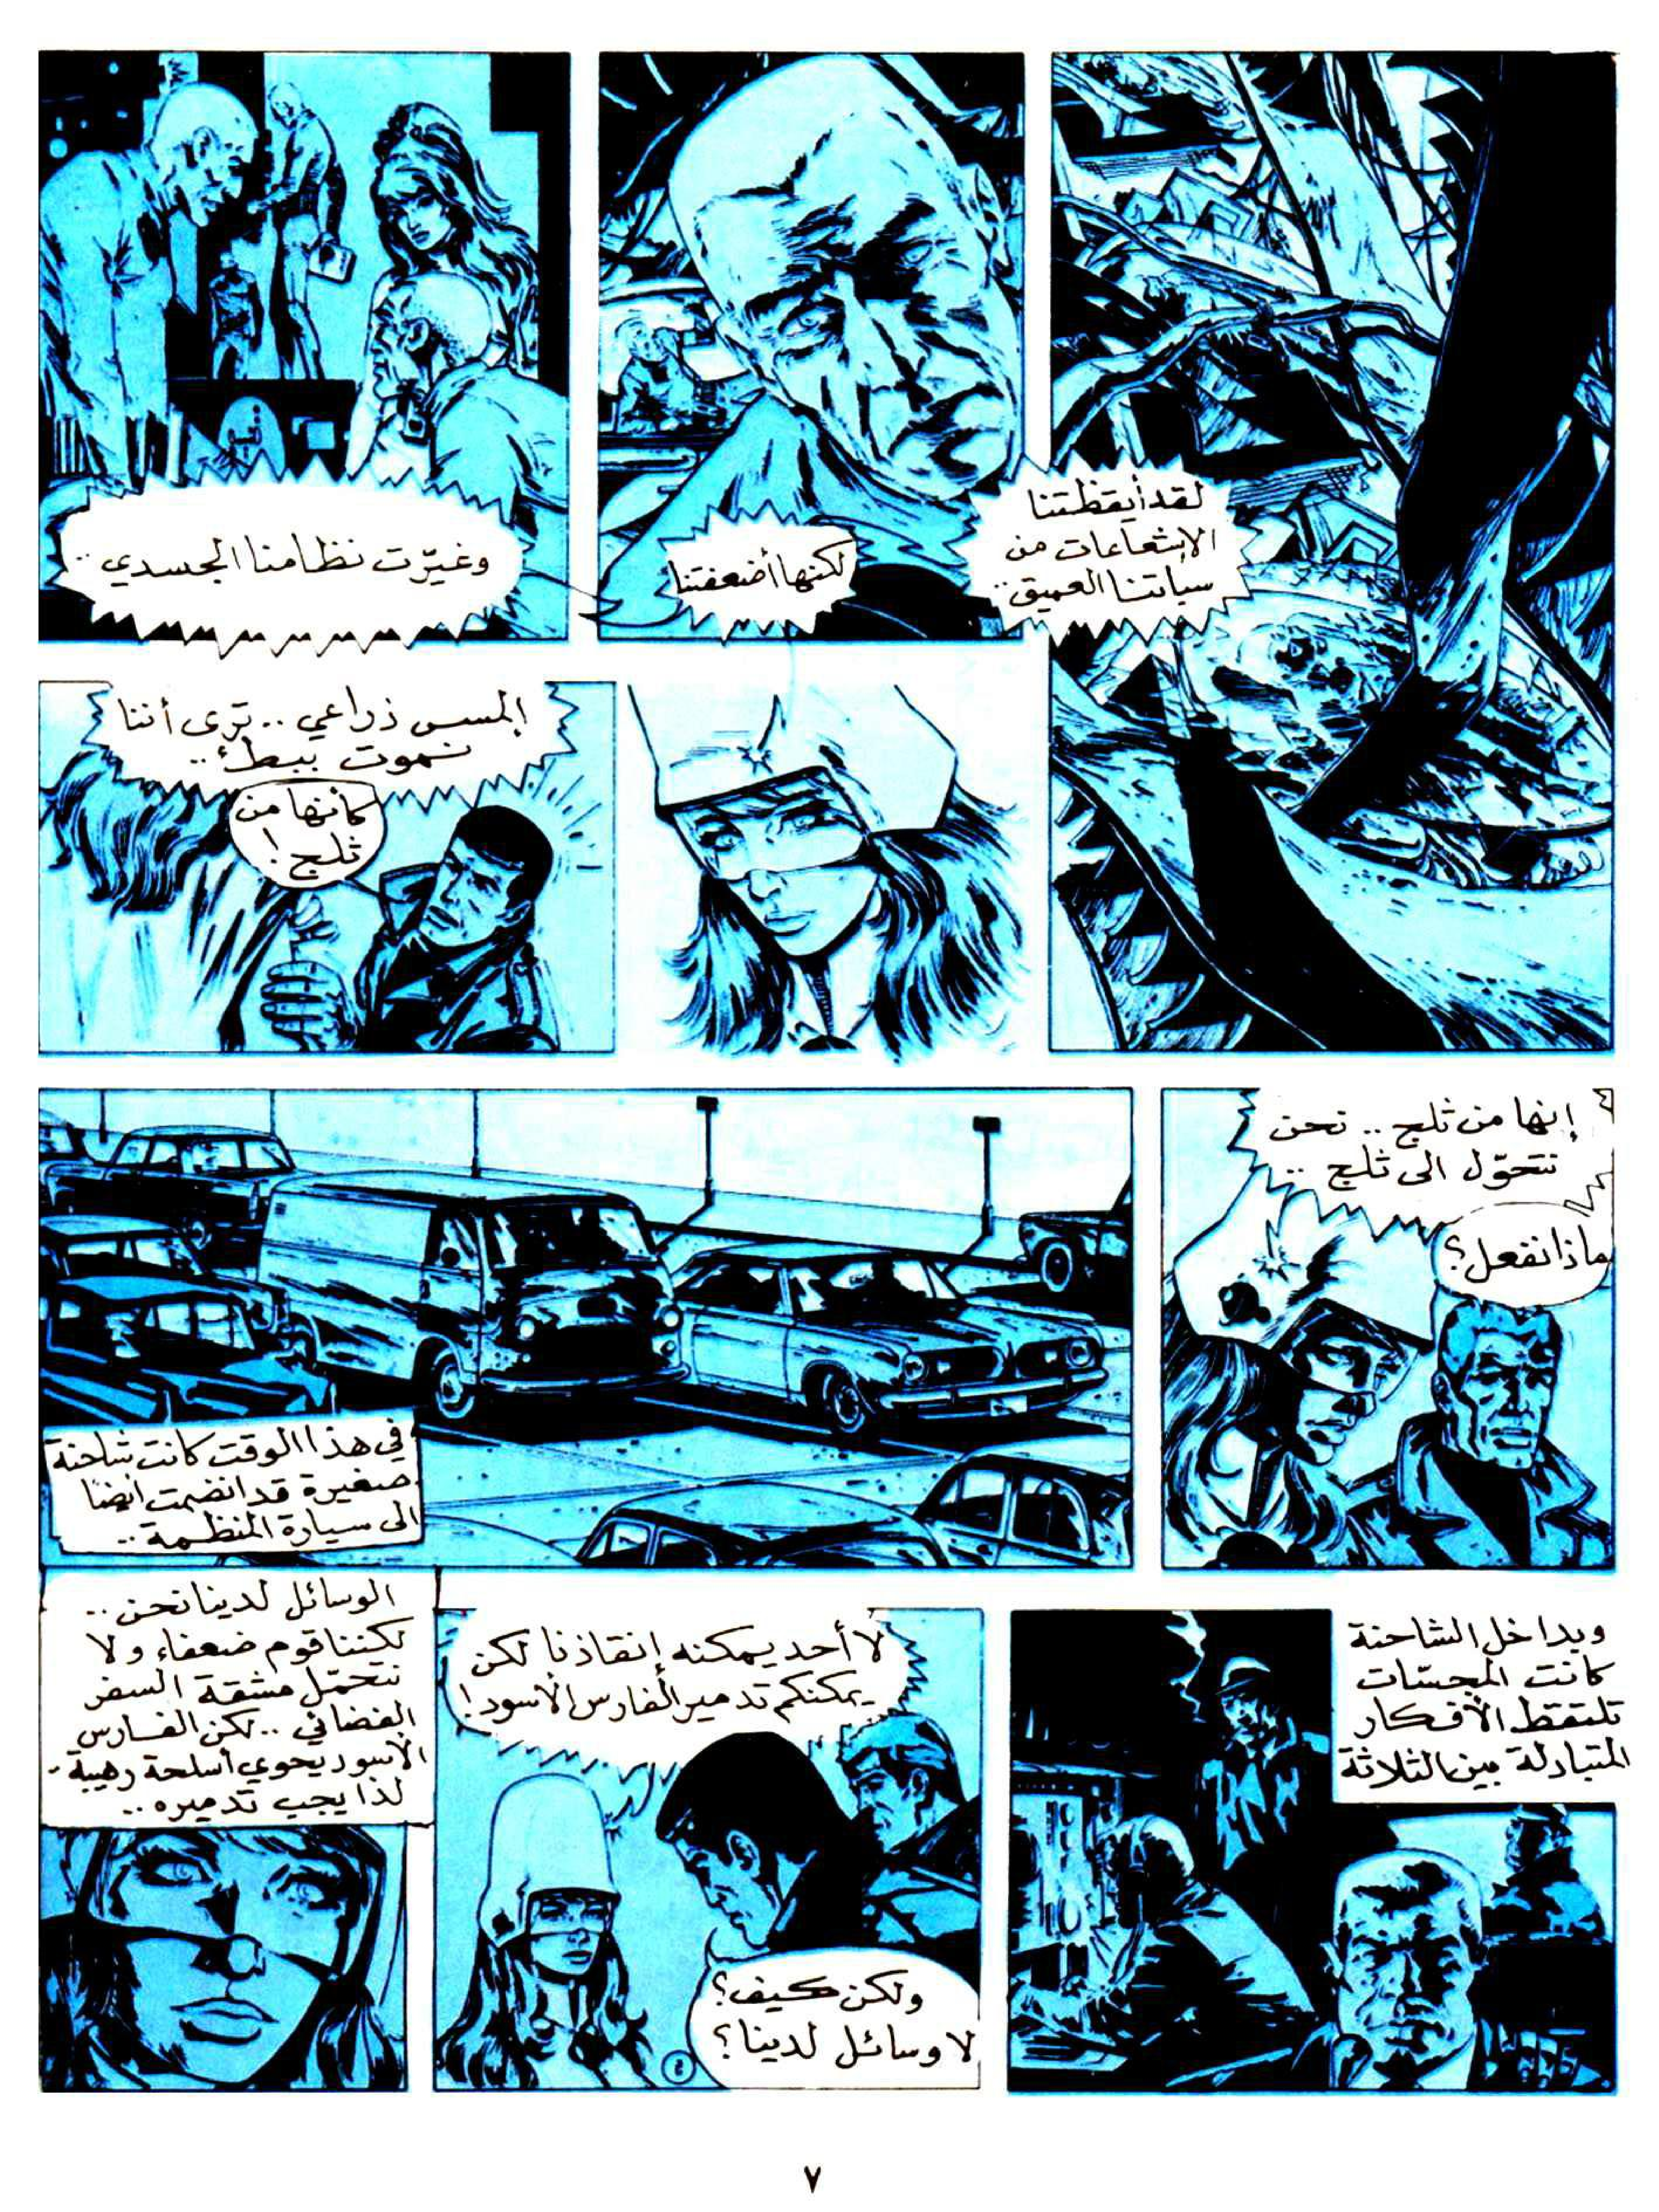 لقد أيقظتنا
الإشعاعات من
سباتنا العميق..
لكنها أضعفتنا
وغيّرت نظامنا الجسدي..
إلمسس ذراعي.. ترى أننا
نموت ببطئ..
كأنها من
ثلج!
إنها من ثلج.. نحن
نتحوّل الى ثلج..
ماذا نفعل؟
في هذا الوقت كانت شاحنة
صغيرة قد انضمت أيضا
الى سيارة المنظمة..
وبداخل الشاحنة
كانت المجسّات
تلتقط الأفكار
المتبادلة بين الثلاثة
لا أحد يمكنه إنقاذنا لكن
يمكنكم تدمير الفارس الأسود!
ولكن كيف؟
لا وسائل لدينا؟
الوسائل لدينا نحن..
لكننا قوم ضعفاء ولا
نتحمّل مشقة السفر
الفضائي.. لكن الفارس
الأسود يحوي أسلحة رهيبة-
لذا يجب تدميره..
٧